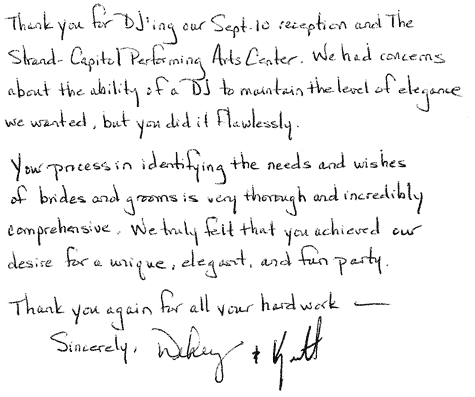 Thank you for DJ'ing our Sept. 10 reception and The
Strand-Capitol Performing Arts Center. We had concerns
about the ability of a DJ to maintain the level of elegance
we wanted, but you did it flawlessly.
Your process in identifying the needs and wishes
of brides and grooms is very thorough and incredibly
comprehensive. We truly felt that you achieved our
desire for a unique, elegant, and fun party.
Thank you again for all your hard work —
Sincerely,